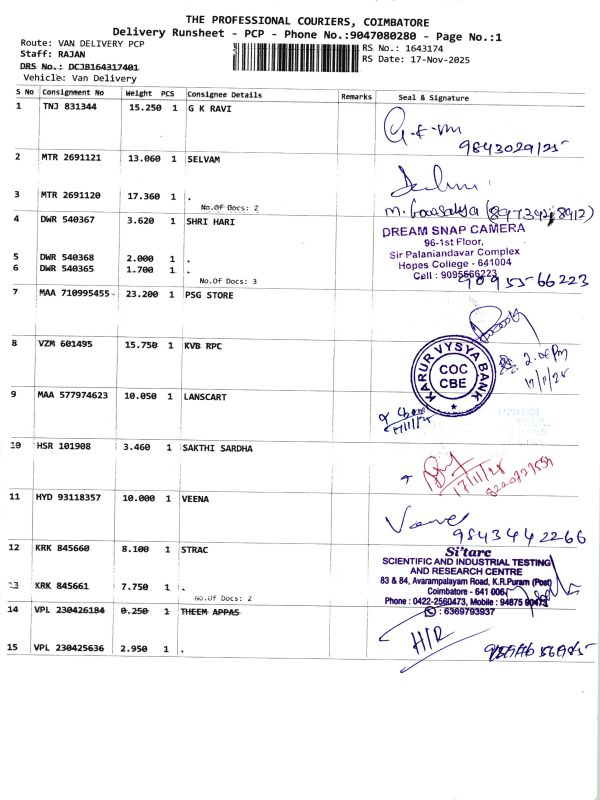 THE PROFESSIONAL COURIERS, COIMBATORE
Delivery Runsheet - PCP - Phone No.:9047080280 - Page No.:1
Route: VAN DELIVERY PCP
RS No.: 1643174
Staff: RAJAN
RS Date: 17-Nov-2025
DRS No.: DCJB164317401
Vehicle: Van Delivery
S No Consignment No Weight PCS Consignee Details Remarks Seal & Signature
1 TNJ 831344 15.250 1 G K RAVI
9843029125
2 MTR 2691121 13.060 1 SELVAM
3 MTR 2691120 17.360 1 .
No.Of Docs: 2
4 DWR 540367 3.620 1 SHRI HARI
DREAM SNAP CAMERA
96-1st Floor,
Sir Palaniandavar Complex
5 DWR 540368 2.000 1 .
Hopes College - 641004
6 DWR 540365 1.700 1 .
Cell : 9095566223
No.Of Docs: 3
90955 66223
7 MAA 710995455 23.200 1 PSG STORE
8 VZM 601495 15.750 1 KVB RPC
KARUR VYSYA BANK
COC
CBE
17/11/25
9 MAA 577974623 10.050 1 LANSCART
10 HSR 101908 3.460 1 SAKTHI SARDHA
17/11/25
11 HYD 93118357 10.000 1 VEENA
9843442266
12 KRK 845660 8.100 1 STRAC
Si'tarc
SCIENTIFIC AND INDUSTRIAL TESTING
AND RESEARCH CENTRE
83 & 84, Avarampalayam Road, K.R.Puram (Post)
13 KRK 845661 7.750 1 .
Coimbatore - 641 006
No.Of Docs: 2
Phone : 0422-2560473, Mobile : 94875 90473
: 6369793937
14 VPL 230426184 0.250 1 THEEM APPAS
H/R
15 VPL 230425636 2.950 1 .